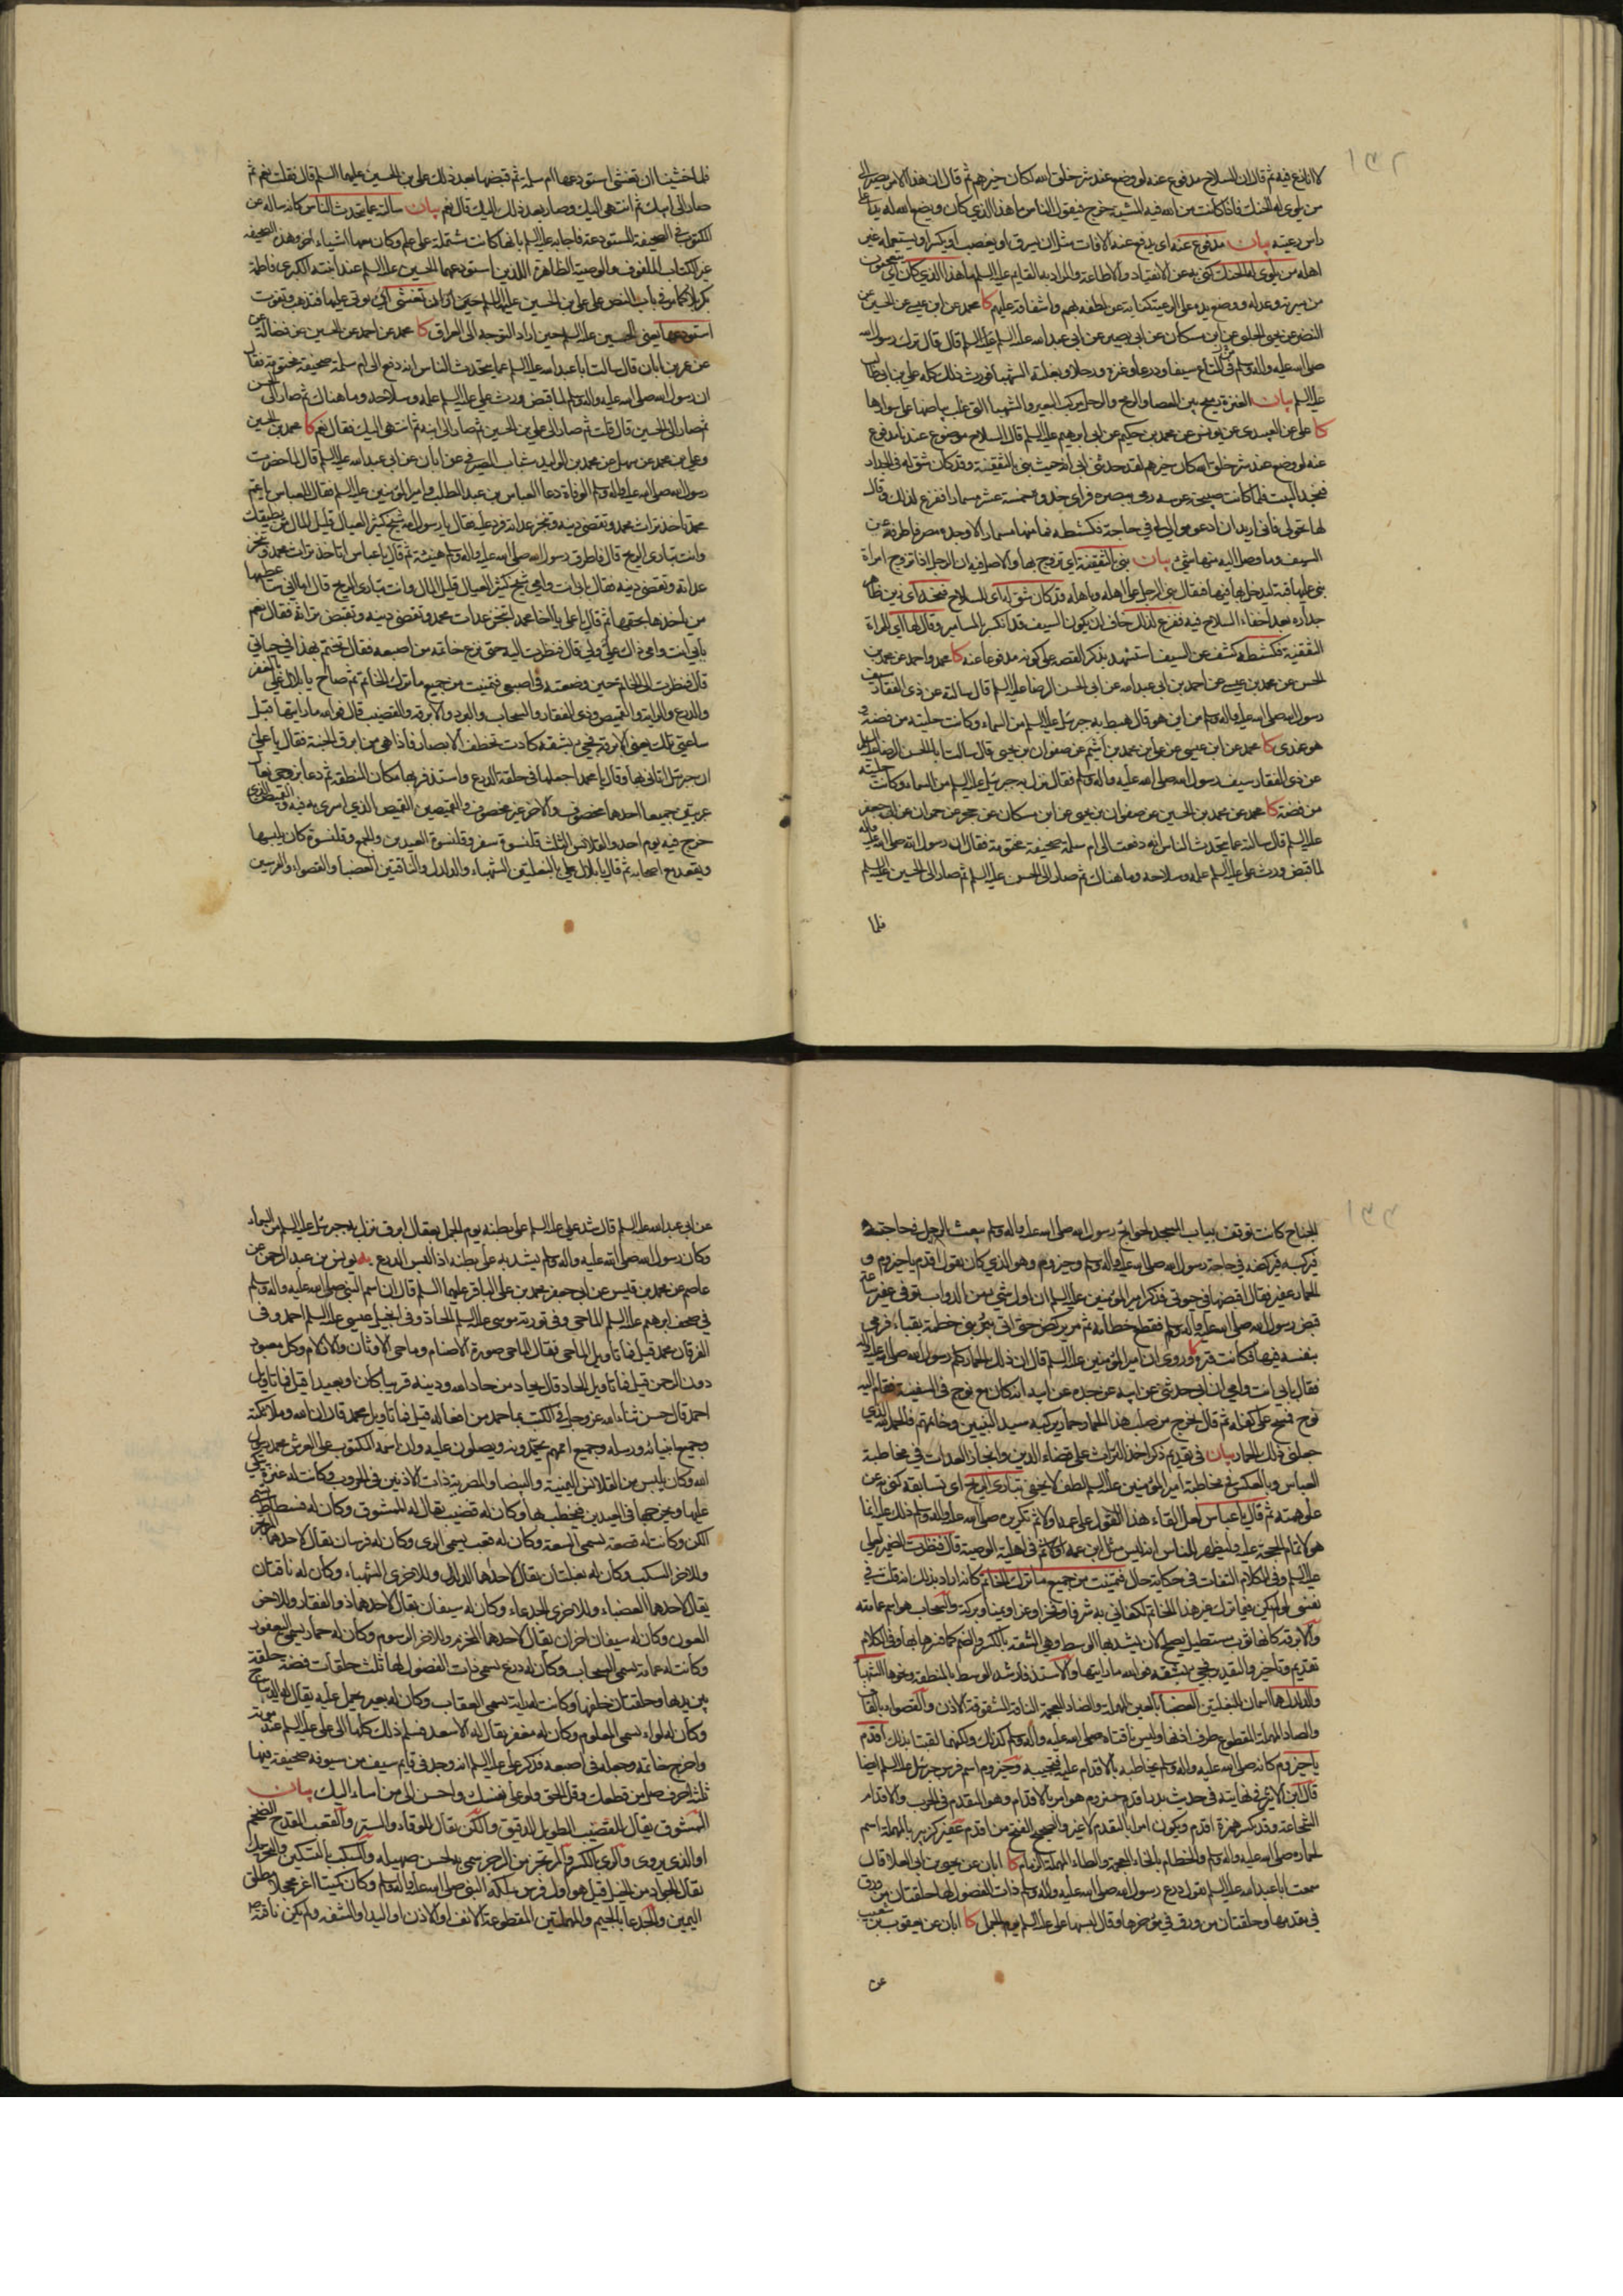 ١٣٢
لا انازع فيه ثم قال ان السلاح مدفوع عنه لو وضع عند شر خلق الله لكان خيرهم ثم قال ان هذا الامر يصير الى
من يلوى له الحنك فاذا كانت من الله فيه المشية خرج فيقول الناس ما هذا الذي كان ويضع الله له يدا على
راس رعيته بيان مدفوع عنه اى يدفع عنه الافات مثل ان يسرق او يغصب او يكسر او يستعمله غير
اهله من يلوى له الحنك كنى به عن الانقياد والاطاعة والمراد به القايم عليه السلم ما هذا الذي كان اى يتعجبون
من سيرته وعدله ووضع يده على الرعية كناية عن لطفه بهم واشفاقه عليهم كا محمد عن ابن عيسى عن الحسين عن
النضر عن يحيى الحلبى عن ابن مسكان عن ابى بصير عن ابى عبد الله عليه السلم قال قال ترك رسول الله
صلى الله عليه واله وسلم فى المتاع سيفا ودرعا وعنزة ورحلا وبغلته الشهباء فورث ذلك كله على بن ابى طالب
عليه السلم بيان العنزة رميح بين العصا والرمح والرحل مركب للبعير والشهبا التى غلب بياضها على سوادها
كا على عن العبيدى عن يونس عن محمد بن حكيم عن ابى ابرهيم عليه السلم قال السلاح موضوع عندنا مدفوع
عنه لو وضع عند شر خلق الله كان خيرهم لقد حدثنى ابى انه حيث بنى بالثقفية وقد كان شق له فى الجدار
فنجد البيت فلما كانت صبيحة عرسه رمى ببصره فراى حذوه خمسة عشر مسمارا ففزع لذلك وقال
لها تحولى فانى اريد ان ادعو موالى فى حاجة فكشطه فما منها مسمار الا وجده مصرفا طرفه عن
السيف وما وصل اليه منها شئ بيان بنى بالثقفية اى تزوج بها والاصل فيه ان الرجل اذا تزوج امراة
بنى عليها قبة ليدخل بها فيها فيقال بنى الرجل على اهله وباهله وقد كان شق له اى للسلاح فنجد اى زين ظاهر
جداره بعد اخفاء السلاح فيه ففزع لذلك خاف ان يكون السيف قد انكسر بالمسامير وقال لها اى للمراة
الثقفية فكشطه كشف عن السيف استشهد بذكر القصه على كونه مدفوعا عنه كا محمد واحمد عن محمد بن
الحسن عن محمد بن عيسى عن احمد بن ابى عبد الله عن ابى الحسن الرضا عليه السلم قال سالته عن ذى الفقار سيف
رسول الله صلى الله عليه واله وسلم من اين هو قال هبط به جبرئيل عليه السلم من السماء وكانت حليته من فضة و
هو عندى كا محمد عن ابن عيسى عن على بن محمد بن اشيم عن صفوان بن يحيى قال سالت ابا الحسن الرضا عليه السلم
عن ذى الفقار سيف رسول الله صلى الله عليه واله وسلم فقال نزل به جبرئيل عليه السلم من السماء وكانت حليته
من فضة كا محمد عن محمد بن الحسين عن صفوان بن يحيى عن ابن مسكان عن حجر عن حمران عن ابى جعفر
عليه السلم قال سالته عما يتحدث الناس انه دفعت الى ام سلمة صحيفة مختومة فقال ان رسول الله صلى الله عليه واله
لما قبض ورث على عليه السلم علمه وسلاحه وما هناك ثم صار الى الحسن عليه السلم ثم صار الى الحسين عليه السلم
فلما
فلما خشينا ان نغشى استودعها ام سلمة ثم قبضها بعد ذلك على بن الحسين عليهما السلم قال فقلت نعم ثم
صار الى ابيك ثم انتهى اليك وصار بعد ذلك اليك قال نعم بيان سالته عما يتحدث الناس كانه ساله عن
المكتوب فى الصحيفة المستودعة فاجابه عليه السلم بانها كانت مشتملة على علم وكان معها اشياء اخر وهذه الصحيفه
غير الكتاب الملفوف والوصية الظاهرة اللذين استودعهما الحسين عليه السلم عند ابنته الكبرى فاطمة
بكربلا كما مر فى باب النص على على بن الحسين عليهما السلم حين اراد ان نغشى اى نؤتى عليها فتذهب وتفوت
استودعها يعنى الحسين عليه السلم حين اراد التوجه الى العراق كا محمد عن احمد عن الحسين عن فضالة عن
عن عمر بن ابان قال سالت ابا عبد الله عليه السلم عما يتحدث الناس انه دفع الى ام سلمة صحيفة مختومة فقال
ان رسول الله صلى الله عليه واله وسلم لما قبض ورث على عليه السلم علمه وسلاحه وما هناك ثم صار الى الحسن
ثم صار الى الحسين قال قلت ثم صار الى على بن الحسين ثم صار الى ابنه ثم انتهى اليك فقال نعم كا محمد بن الحسين
وعلى بن محمد عن سهل عن محمد بن الوليد شباب الصيرفى عن ابان عن ابى عبد الله عليه السلم قال لما حضرت
رسول الله صلى الله عليه واله وسلم الوفاة دعا العباس بن عبد المطلب وامير المؤمنين عليه السلم فقال للعباس يا عم
محمد تاخذ تراث محمد وتقضى دينه وتنجز عداته فرد عليه فقال يا رسول الله شيخ كثير العيال قليل المال من يطيقك
وانت تبارى الريح قال فاطرق رسول الله صلى الله عليه واله وسلم هنيئة ثم قال يا عباس اتاخذ تراث محمد وتنجز
عداته وتقضى دينه فقال بابى انت وامى شيخ كثير العيال قليل المال وانت تبارى الريح قال اما انى ساعطيها
من ياخذها بحقها ثم قال يا على يا اخا محمد اتنجز عدات محمد وتقضى دينه وتقبض تراثه فقال نعم
بابى انت وامى ذاك على ولى قال فنظرت اليه حتى نزع خاتمه من اصبعه فقال تختم بهذا فى حياتى
قال فنظرت الى الخاتم حين وضعته فى اصبعى فتمنيت من جميع ما ترك الخاتم ثم صاح يا بلال على بالمغفر
والدرع والراية والقميص وذى الفقار والسحاب والبرد والابرقة والقضيب قال فوالله ما رايتها قبل
ساعتى تلك يعنى الابرقة فجئ بشقه كادت تخطف الابصار فاذا هى من ابرق الجنة فقال يا على
ان جبرئيل اتانى بها وقال يا محمد اجعلها فى حلقة الدرع واستذفر بها مكان المنطقة ثم دعا بزوجى نعال
عربيين جميعا احدهما مخصوف والاخر غير مخصوف والقميصين القميص الذى اسرى به فيه والقميص الذى
خرج فيه يوم احد والقلانس الثلث قلنسوة السفر وقلنسوة العيدين والجمع وقلنسوة كان يلبسها
ويقعد مع اصحابه ثم قال يا بلال على بالبغلتين الشهباء والدلدل والناقتين العضبا والقصواء والفرسين
١٣٣
الجناح كانت توقف بباب المسجد لحوائج رسول الله صلى الله عليه واله وسلم يبعث الرجل فى حاجته
فيركبه فيركضه فى حاجة رسول الله صلى الله عليه واله وسلم وحيزوم وهو الذى كان يقول اقدم يا حيزوم و
الحمار عفير فقال اقبضها فى حيوتى فذكر امير المؤمنين عليه السلم ان اول شئ من الدواب توفى عفير ساعة
قبض رسول الله صلى الله عليه واله وسلم قطع خطامه ثم مر يركض حتى اتى بئر بنى خطمة بقباء فرمى
بنفسه فيها فكانت قبره وروى ان امير المؤمنين عليه السلم قال ان ذلك الحمار كلم رسول الله صلى الله عليه واله
فقال بابى انت وامى ان ابى حدثنى عن ابيه عن جده عن ابيه انه كان مع نوح فى السفينة فقام اليه
نوح فمسح على كفله ثم قال يخرج من صلب هذا الحمار حمار يركبه سيد النبيين وخاتمهم فالحمد لله الذى
جعلنى ذلك الحمار بيان فى تقديم ذكر اخذ التراث على قضاء الدين وانجاز العدات فى مخاطبة
العباس وبالعكس فى مخاطبة امير المؤمنين عليه السلم لطف لا يخفى تبارى الريح اى تسابقه كنى به عن
علو همته ثم قال يا عباس لعل القاء هذا القول على عمه اولا ثم تكريره صلى الله عليه واله وسلم ذلك عليه انما
هو لاتمام الحجة عليه وليظهر للناس انه ليس مثل ابن عمه فى اهلية الوصية قال فنظرت الضمير لعلى
عليه السلم وفى الكلام التفات فى حكاية حال فتمنيت من جميع ما ترك الخاتم كانه اراد بذلك انه قلت فى
نفسى لو لم يكن فيما ترك غير هذا الخاتم لكفانى به شرفا وفخرا وعزا ويمنا وبركة والسحاب هو اسم عمامته
والابرقة كانها ثوب مستطيل يصلح لان يشد بها الوسط وهى الشقة بالكسر والضم كما فسرها بها وفى الكلام
تقديم وتاخير والتقدير فجئ بشقه فوالله ما رايتها والاستذفار شد الوسط بالمنطقة ونحوها والشهبا
والدلدل هما اسمان للبغلتين العضباء بالعين المهملة والضاد المعجمة الناقة المشقوقة الاذن والقصواء بالقاف
والصاد المهملة المقطوع طرف اذنها وليس ناقتاه صلى الله عليه واله وسلم كذلك ولكنهما لقبتا بذلك اقدم
يا حيزوم كانه صلى الله عليه واله وسلم يخاطبه بالاقدام عليه فيجيبه وحيزوم اسم فرس جبرئيل عليه السلم ايضا
قال ابن الاثير فى نهايته فى حديث بدر اقدم حيزوم هو امر بالاقدام وهو التقدم فى الحرب والاقدام
الشجاعة وقد تكسر همزة اقدم ويكون امرا بالتقدم لا غير والصحيح الفتح من اقدم عفير كزبير بالمهملة اسم
لحماره صلى الله عليه واله وسلم والخطام بالخاء المعجمة والطاء المهملة الزمام كا ابان عن يحيى بن ابى العلا قال
سمعت ابا عبد الله عليه السلم يقول درع رسول الله صلى الله عليه واله وسلم ذات الفضول لها حلقتان من ورق
فى مقدمها وحلقتان من ورق فى مؤخرها وقال لبسها على عليه السلم يوم الجمل كا ابان عن يعقوب بن شعيب
عن
عن ابى عبد الله عليه السلم قال شد على عليه السلم على بطنه يوم الجمل بعقال ابرق نزل به جبرئيل عليه السلم من السماء
وكان رسول الله صلى الله عليه واله وسلم يشد به على بطنه اذا لبس الدرع يه يونس بن عبد الرحمن عن
عاصم عن محمد بن قيس عن ابى جعفر محمد بن على الباقر عليهما السلم قال ان اسم النبى صلى الله عليه واله وسلم
فى صحف ابرهيم عليه السلم الماحى وفى تورية موسى عليه السلم الحاد وفى انجيل عيسى عليه السلم احمد وفى
الفرقان محمد قيل فما تاويل الماحى فقال الماحى صورة الاصنام وماحى الاوثان والازلام وكل معبود
دون الرحمن قيل فما تاويل الحاد قال يحاد من حاد الله ودينه قريبا كان او بعيدا قيل فما تاويل
احمد قال حسن ثناء الله عز وجل فى الكتب بما حمد من افعاله قيل فما تاويل محمد قال ان الله وملائكته
وجميع انبيائه ورسله وجميع اممهم يحمدونه ويصلون عليه وان اسمه المكتوب على العرش محمد رسول
الله وكان يلبس من القلانس اليمنية والبيضا والمضربة ذات الاذنين فى الحروب وكانت له عنزة يتكئ
عليها ويخرجها فى العيدين فيخطب بها وكان له قضيب يقال له الممشوق وكان له فسطاط يسمى
الكن وكانت له قصعة تسمى السعة وكان له قعب يسمى الرى وكان له فرسان يقال لاحدهما المرتجز
وللاخر السكب وكان له بغلتان يقال لاحدهما الدلدل وللاخرى الشهباء وكان له ناقتان
يقال لاحدهما العضباء وللاخرى الجدعاء وكان له سيفان يقال لاحدهما ذو الفقار وللاخر
العون وكان له سيفان اخران يقال لاحدهما المخذم وللاخر الرسوم وكان له حمار يسمى اليعفور
وكانت له عمامة تسمى السحاب وكان له درع تسمى ذات الفضول لها ثلث حلقات فضة حلقة
بين يديها وحلقتان خلفها وكانت له راية تسمى العقاب وكان له بعير يحمل عليه يقال له الديباج
وكان له لواء يسمى المعلوم وكان له مغفر يقال له الاسعد فسلم ذلك كلها الى على عليه السلم عند موته
واخرج خاتمه وجعله فى اصبعه فذكر على عليه السلم انه وجد فى قايم سيف من سيوفه صحيفة فيها
ثلثة احرف صل من قطعك وقل الحق ولو على نفسك واحسن الى من اساء اليك بيان
الممشوق يقال للقضيب الطويل الدقيق والكن يقال للوقاء والستر والقعب القدح الضخم
او الذى يروى والرى بالكسر والمرتجز من الرجز سمى به لحسن صهيله والسكب بالتسكين والتحريك
يقال للجواد من الخيل قيل هو اول فرس ملكه النبى صلى الله عليه واله وسلم وكان كميتا اغر محجلا مطلق
اليمين والجدعا بالجيم والمهملتين المقطوعة الانف او الاذن او اليد او الشفه ولم يكن ناقته